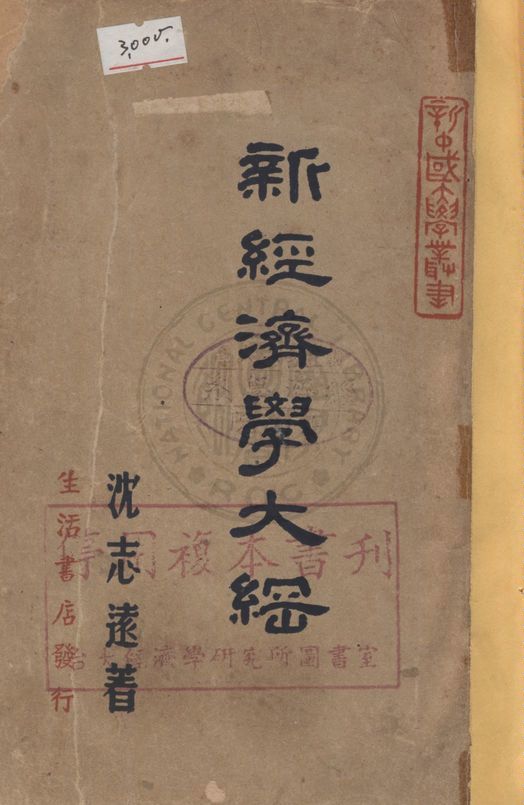 3,000.
新中國大學叢書
新經濟學大綱
沈志遠著
生活書店發行
NATIONAL CENTRAL LIBRARY
R.O.C.
複本書刊
台大經濟學研究所圖書室